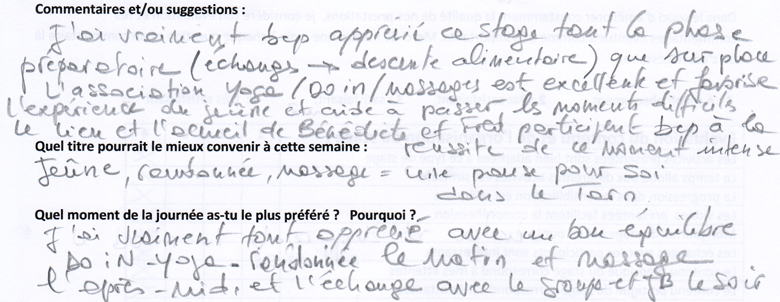 Commentaires et/ou suggestions :
J'ai vraiment bcp apprécié ce stage tant la phase
préparatoire (échanges → descente alimentaire) que sur place
L'association Yoga / Do in / massages est excellente et favorise
l'expérience du jeûne et aide à passer les moments difficils
le lieu et l'accueil de Bénédicte et Fred participent bcp à la
réussite de ce moment intense
Quel titre pourrait le mieux convenir à cette semaine :
Jeûne, randonnée, massage = une pause pour soi
dans le Tarn
Quel moment de la journée as-tu le plus préféré ? Pourquoi ?
J'ai vraiment tout apprécié avec un bon équilibre
Do iN - Yoga - randonnée le matin et massage
l'après-midi, et l'échange avec le groupe et JB le soir